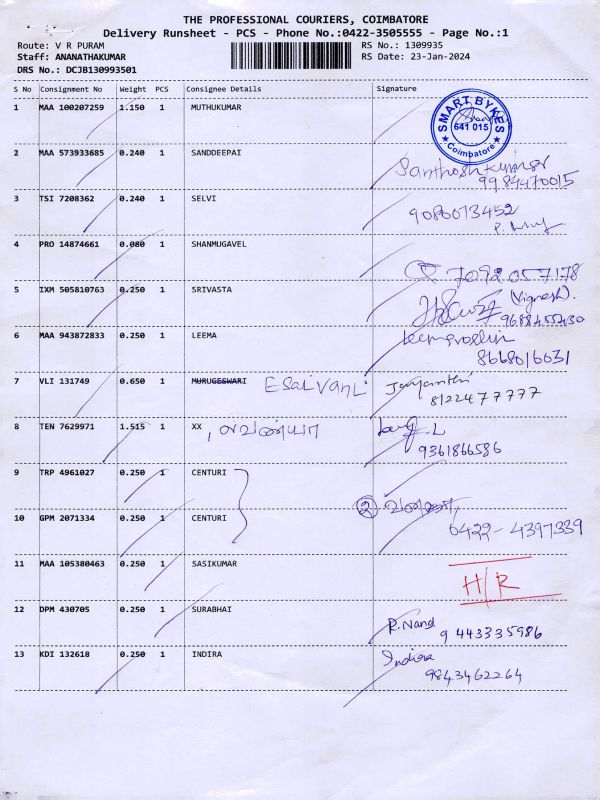 THE PROFESSIONAL COURIERS, COIMBATORE
Delivery Runsheet - PCS - Phone No.:0422-3505555 - Page No.:1
Route: V R PURAM RS No.: 1309935
Staff: ANANATHAKUMAR RS Date: 23-Jan-2024
DRS No.: DCJB130993501
S No Consignment No Weight PCS Consignee Details Signature
1 MAA 100207259 1.150 1 MUTHUKUMAR
SMART BYKES
641 015
★ Coimbatore ★
2 MAA 573933685 0.240 1 SANDDEEPAI
Santhosh kumar
9984470015
3 TSI 7208362 0.240 1 SELVI 9080013452
4 PRO 14874661 0.080 1 SHANMUGAVEL
7092057178
5 IXM 505810763 0.250 1 SRIVASTA (Vignesh).
9688455430
6 MAA 943872833 0.250 1 LEEMA
8668016631
7 VLI 131749 0.650 1 MURUGESWARI
8122477777
8 TEN 7629971 1.515 1 XX
9361866586
9 TRP 4961027 0.250 1 CENTURI
2
10 GPM 2071334 0.250 1 CENTURI 0422-4397339
11 MAA 105380463 0.250 1 SASIKUMAR H/R
12 DPM 430705 0.250 1 SURABHAI R.Nand
9443335986
13 KDI 132618 0.250 1 INDIRA Indira
9843462264